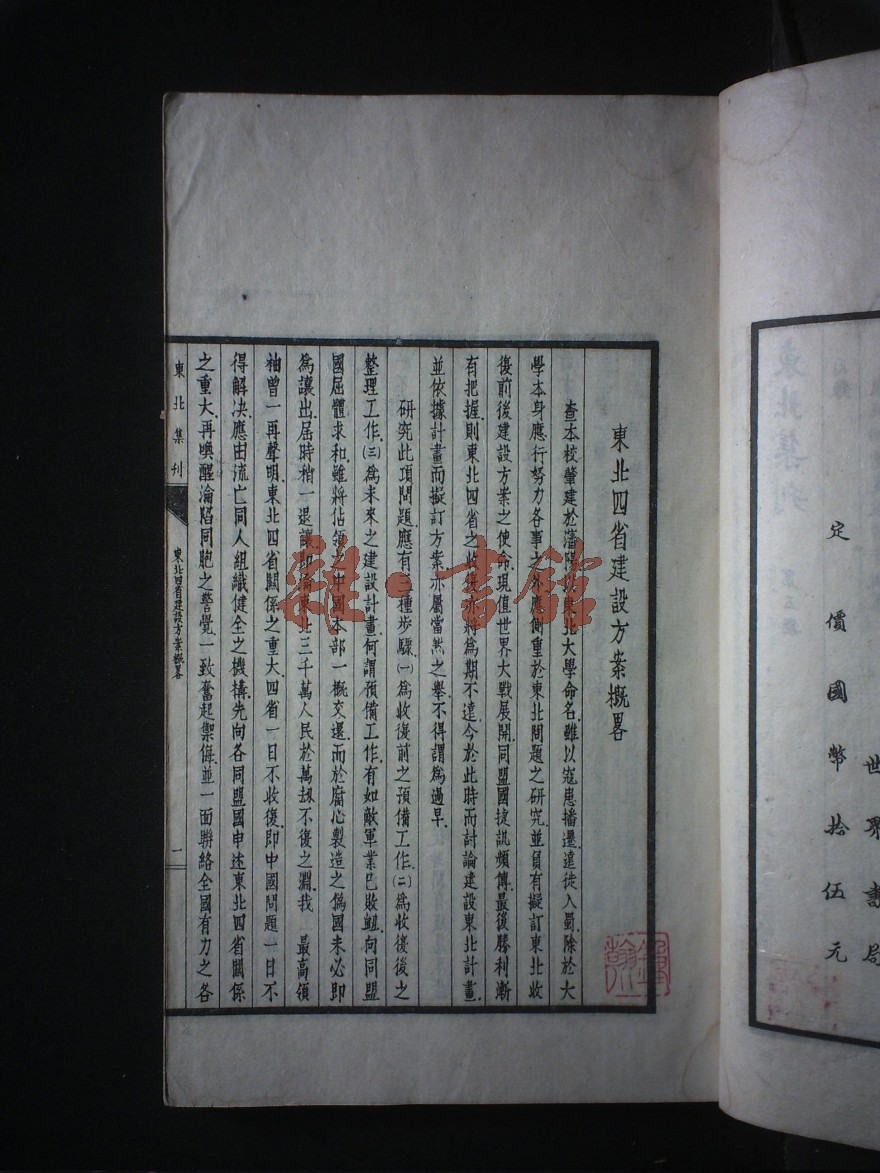 東北四省建設方案概畧
查本校肇建於瀋陽以東北大學命名雖以寇患播遷遠徙入蜀除於大
學本身應行努力各事之外應側重於東北問題之研究並負有擬訂東北收
復前後建設方案之使命現值世界大戰展開同盟國捷訊頻傳最後勝利漸
有把握則東北四省之收復亦將為期不遠今於此時而討論建設東北計畫
並依據計畫而擬訂方案亦屬當然之舉不得謂為過早
研究此項問題應有三種步驟㈠為收復前之預備工作㈡為收復後之
整理工作㈢為未來之建設計畫何謂預備工作有如敵軍業已敗衄向同盟
國屈體求和雖將佔領之中國本部一概交還而於腐心製造之偽國未必即
為讓出屆時稍一退讓即淪東北三千萬人民於萬劫不復之淵我 最高領
袖曾一再聲明東北四省關係之重大四省一日不收復即中國問題一日不
得解決應由流亡同人組織健全之機構先向各同盟國申述東北四省關係
之重大再喚醒淪陷同胞之警覺一致奮起禦侮並一面聯絡全國有力之各
東北集刊
東北四省建設方案概畧
一
世界書局
定價國幣拾伍元
雜·書館